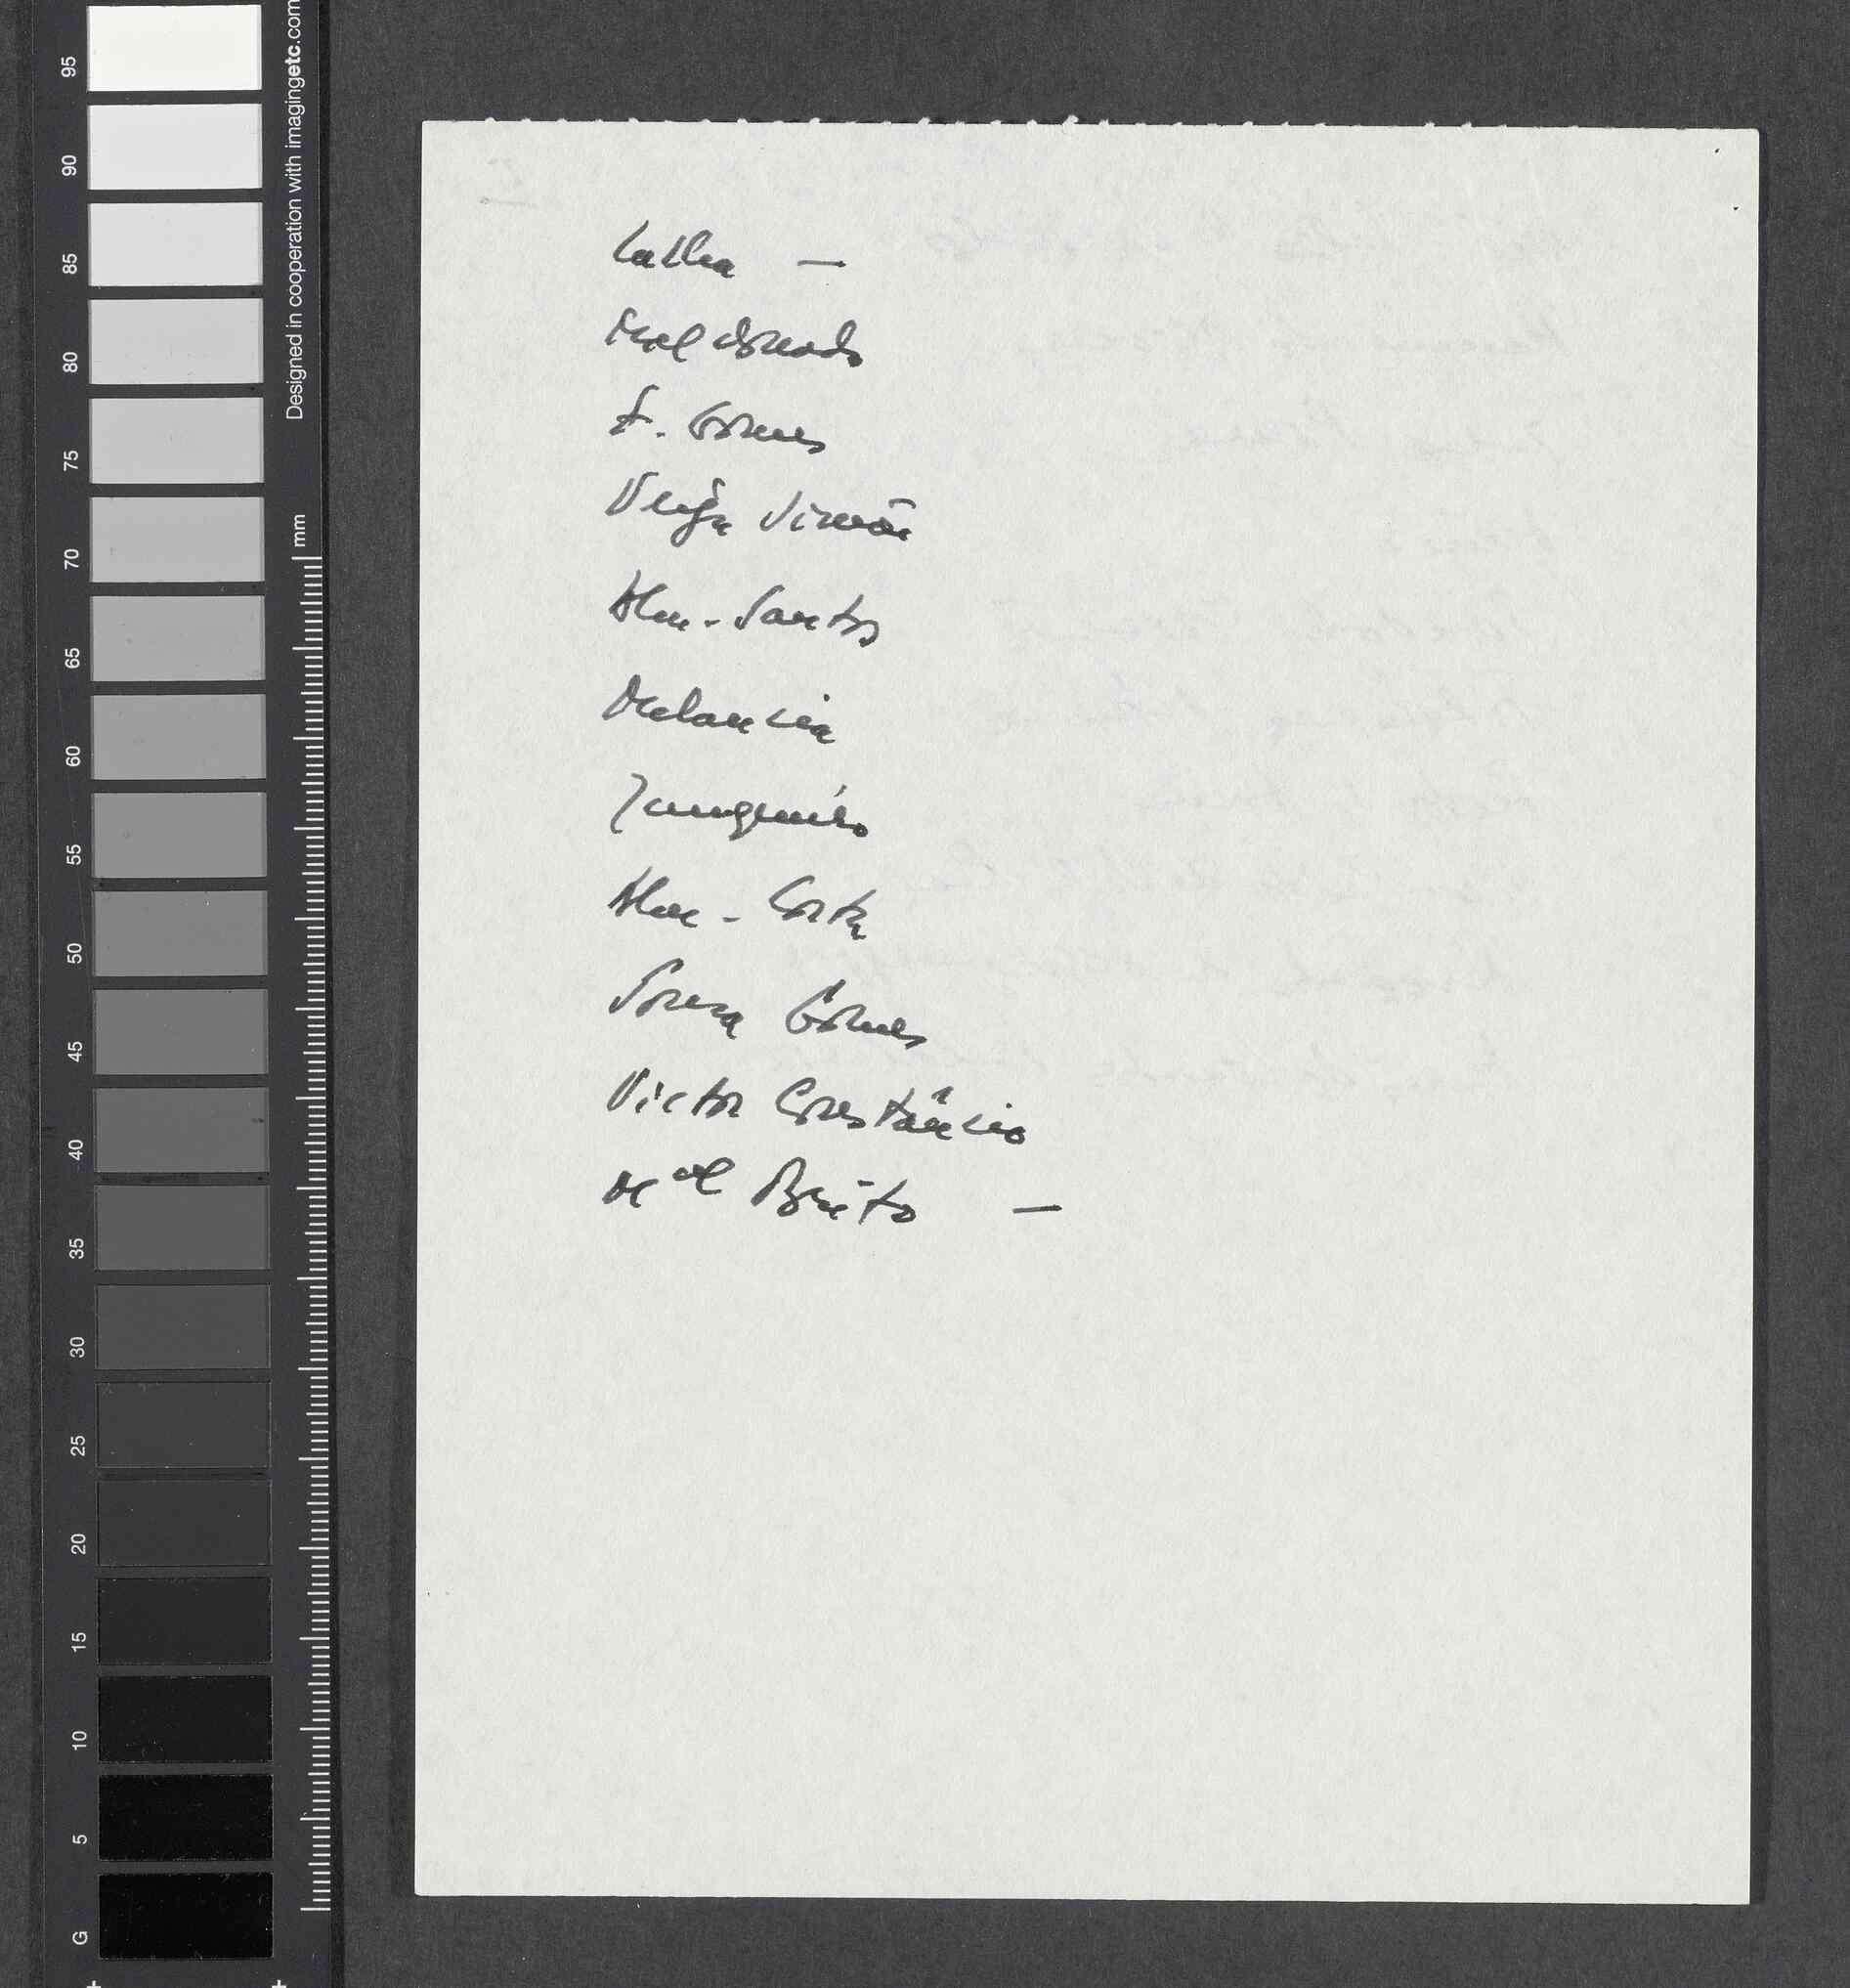 95
90
85
80
75
70
65
60
55
50
45
40
35
30
25
20
15
10
5
G
Designed in cooperation with imagingetc.com
mm
Calha —
F. Gomes
Veiga Simão
Alm. Santos
Melancia
Alm. Costa
Sousa Gomes
Victor Constâncio
Mel Brito —